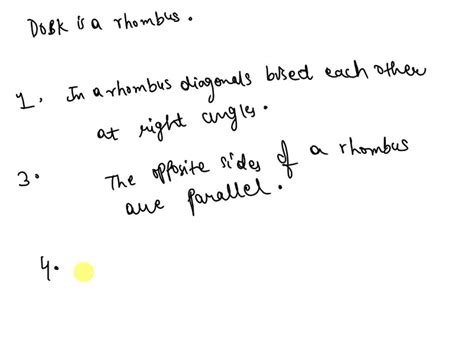 DOBK is a rhombus.
1. In a rhombus diagonals bised each other
at right angles.
3. The opposite sides of a rhombus
are parallel.
4.